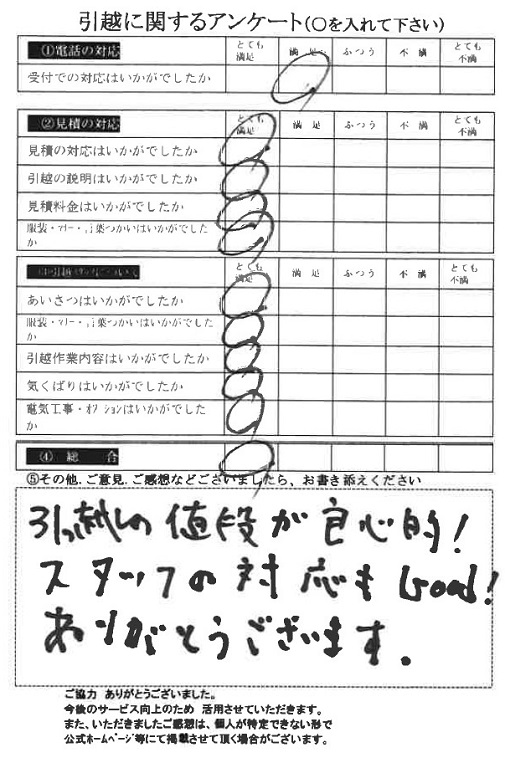 引越に関するアンケート(○を入れて下さい)
①電話の対応 とても満足 満足 ふつう 不満 とても不満
受付での対応はいかがでしたか
②見積の対応 とても満足 満足 ふつう 不満 とても不満
見積の対応はいかがでしたか
引越の説明はいかがでしたか
見積料金はいかがでしたか
服装・マナー・言葉つかいはいかがでしたか
とても満足 満足 ふつう 不満 とても不満
あいさつはいかがでしたか
服装・マナー・言葉つかいはいかがでしたか
引越作業内容はいかがでしたか
気くばりはいかがでしたか
電気工事・オプションはいかがでしたか
④ 総 合
⑤その他.ご意見.ご感想などございましたら、お書き添えください
引っ越しの値段が良心的!
スタッフの対応もGood!
ありがとうございます.
ご協力 ありがとうございました。
今後のサービス向上のため 活用させていただきます。
また、いただきましたご感想は、個人が特定できない形で
公式ホームページ等にて掲載させて頂く場合がございます。